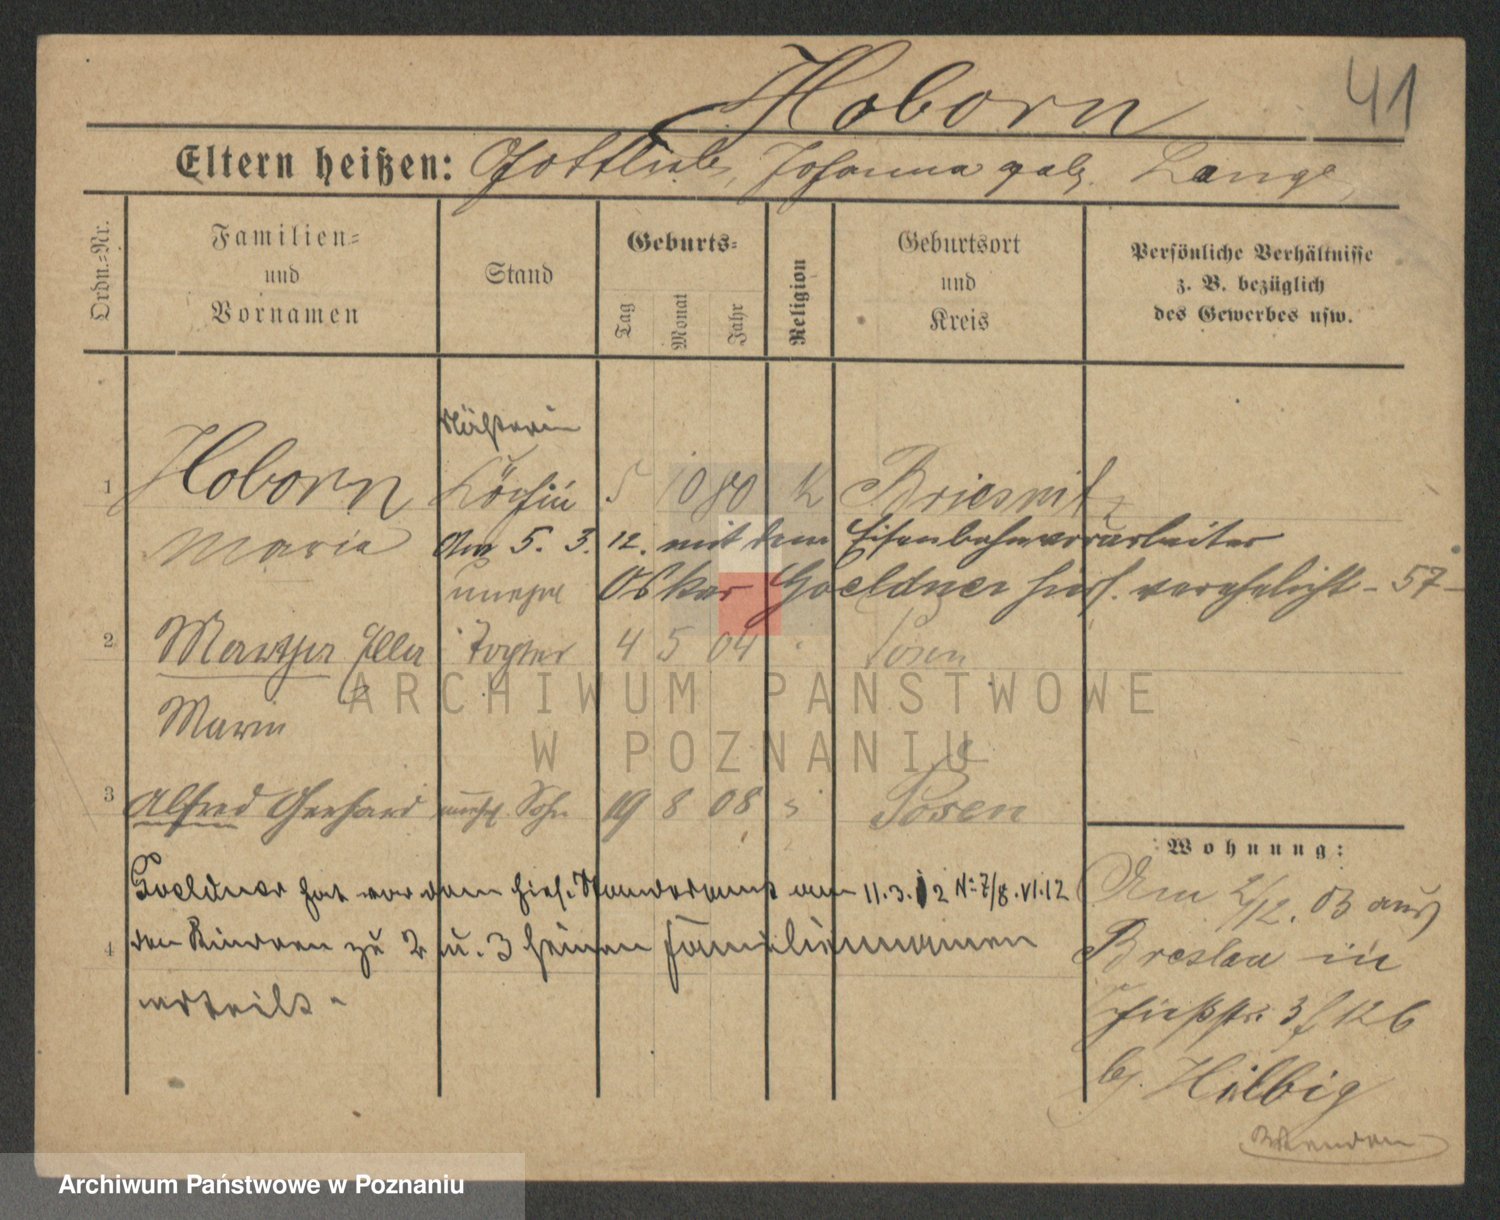 Hoborn
41
Eltern heißen: Gottlieb, Johanna geb. Lange
Ordn.=Nr.
Familien=
und
Vornamen
Stand
Geburts=
Tag
Monat
Jahr
Religion
Geburtsort
und
Kreis
Persönliche Verhältnisse
z. B. bezüglich
des Gewerbes usw.
Näherin
1 Hoborn Köchin 5 10 80 K Briesnitz
Marie Am 5. 3. 12. mit dem Eisenbahnvorarbeiter
unehel Oskar Goeldner hies. verehelicht - 57 -
2 Martha Ella Tochter 4 5 04 Posen
Marie
3 Alfred Gerhard unehl. Sohn 19 8 08 Posen
Goeldner hat vor dem hies. Standesamt am 11.3.12 No 7/8. VI.12
4 den Kindern zu 2 u. 3 seinen Familiennamen
erteilt -
Wohnung:
Am 2/12. 03 aus
Breslau in
3 12 b
b. Hilbig
ARCHIWUM PAŃSTWOWE
W POZNANIU
Archiwum Państwowe w Poznaniu